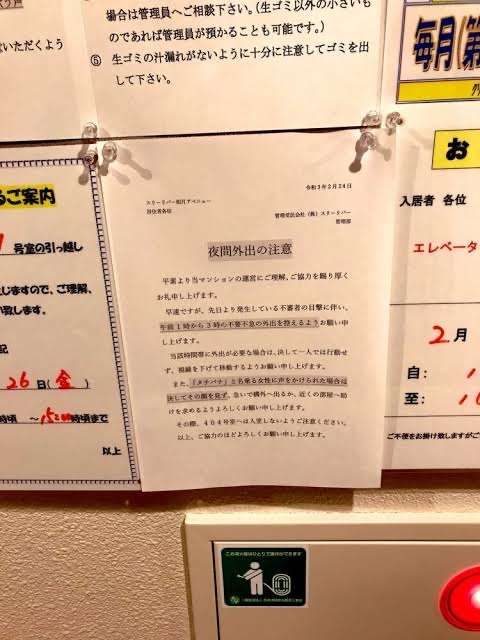 場合は管理員へご相談下さい。(生ゴミ以外の小さいも
のであれば管理員が預かることも可能です。)
⑤ 生ゴミの汁漏れがないように十分に注意してゴミを出
して下さい。
いただくよう
毎月(第
るご案内
号室の引っ越し
じますので、ご理解、
い致します。
記
26日(金)
時頃 ~15時頃まで
以上
令和3年2月24日
スリーリバー如月アベニュー
居住者各位
管理受託会社 (株)スリーリバー
管理部
夜間外出の注意
平素より当マンションの運営にご理解、ご協力を賜り厚く
お礼申し上げます。
早速ですが、先日より発生している不審者の目撃に伴い、
午前1時から3時の不要不急の外出を控えるようお願い申
し上げます。
当該時間帯に外出が必要な場合は、決して一人では行動せ
ず、視線を下げて移動するようお願い申し上げます。
また、「タチバナ」と名乗る女性に声をかけられた場合は
決してその顔を見ず、急いで構外へ出るか、近くの部屋へ助
けを求めるようよろしくお願い申し上げます。
その際、404号室へは入室しないようご注意ください。
以上、ご協力のほどよろしくお願い申し上げます。
お
入居者 各位
エレベータ
2月
自:
至:
ご不便をお掛け致しますがご